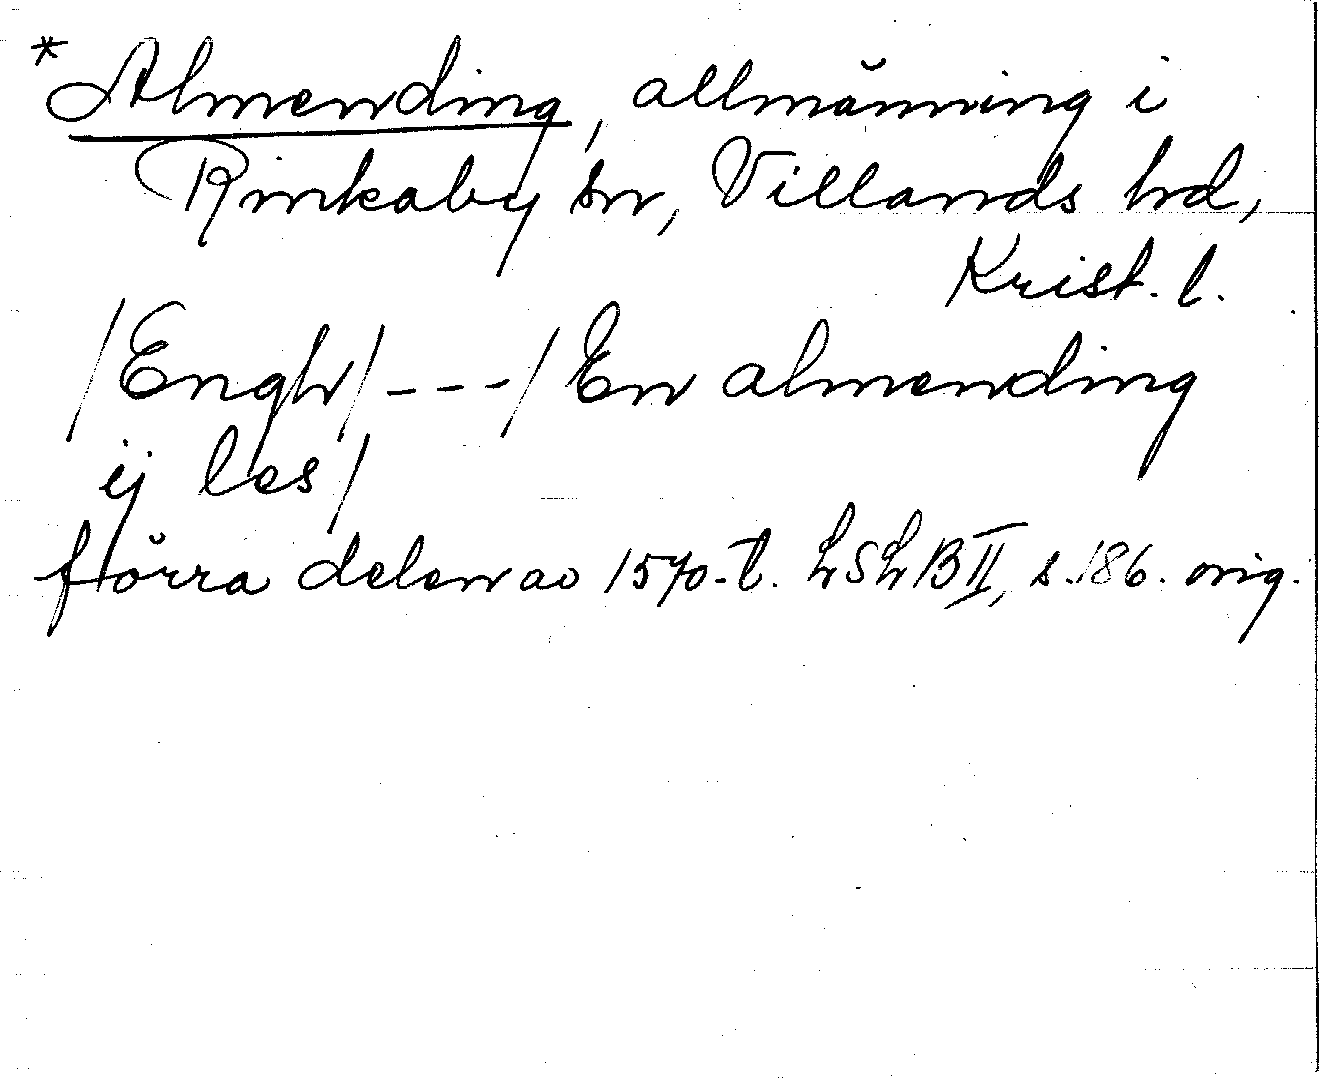 *Almending, allmänning i
Rinkaby sn, Villands hd,
Krist. l.
/Engh/---/En almending
ij les/
förra delen av 1570-t. LSLB II, s. 186. orig.